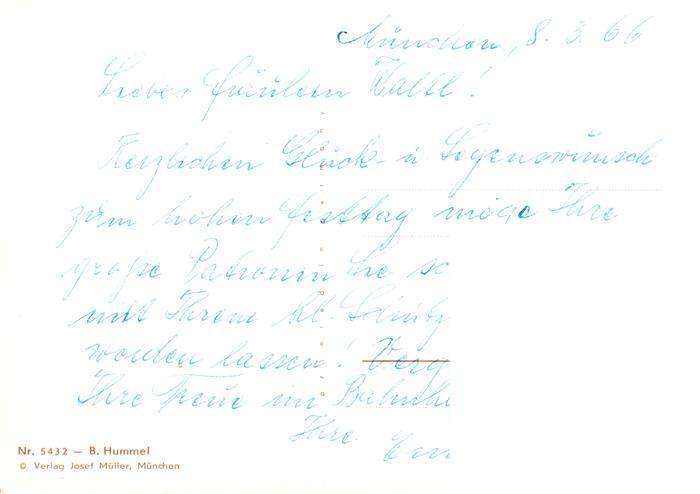 München, 8. 3. 66
Liebes Fräulein Waltl!
Herzlichen Glück- u Segenswunsch
zum hohen Festtag möge Ihre
große Patronin Sie so
mit Ihrem hl. Schutz
werden lassen! Verg
Ihre Treue im Bahnh
Ihre
Nr. 5432 — B. Hummel
© Verlag Josef Müller, München